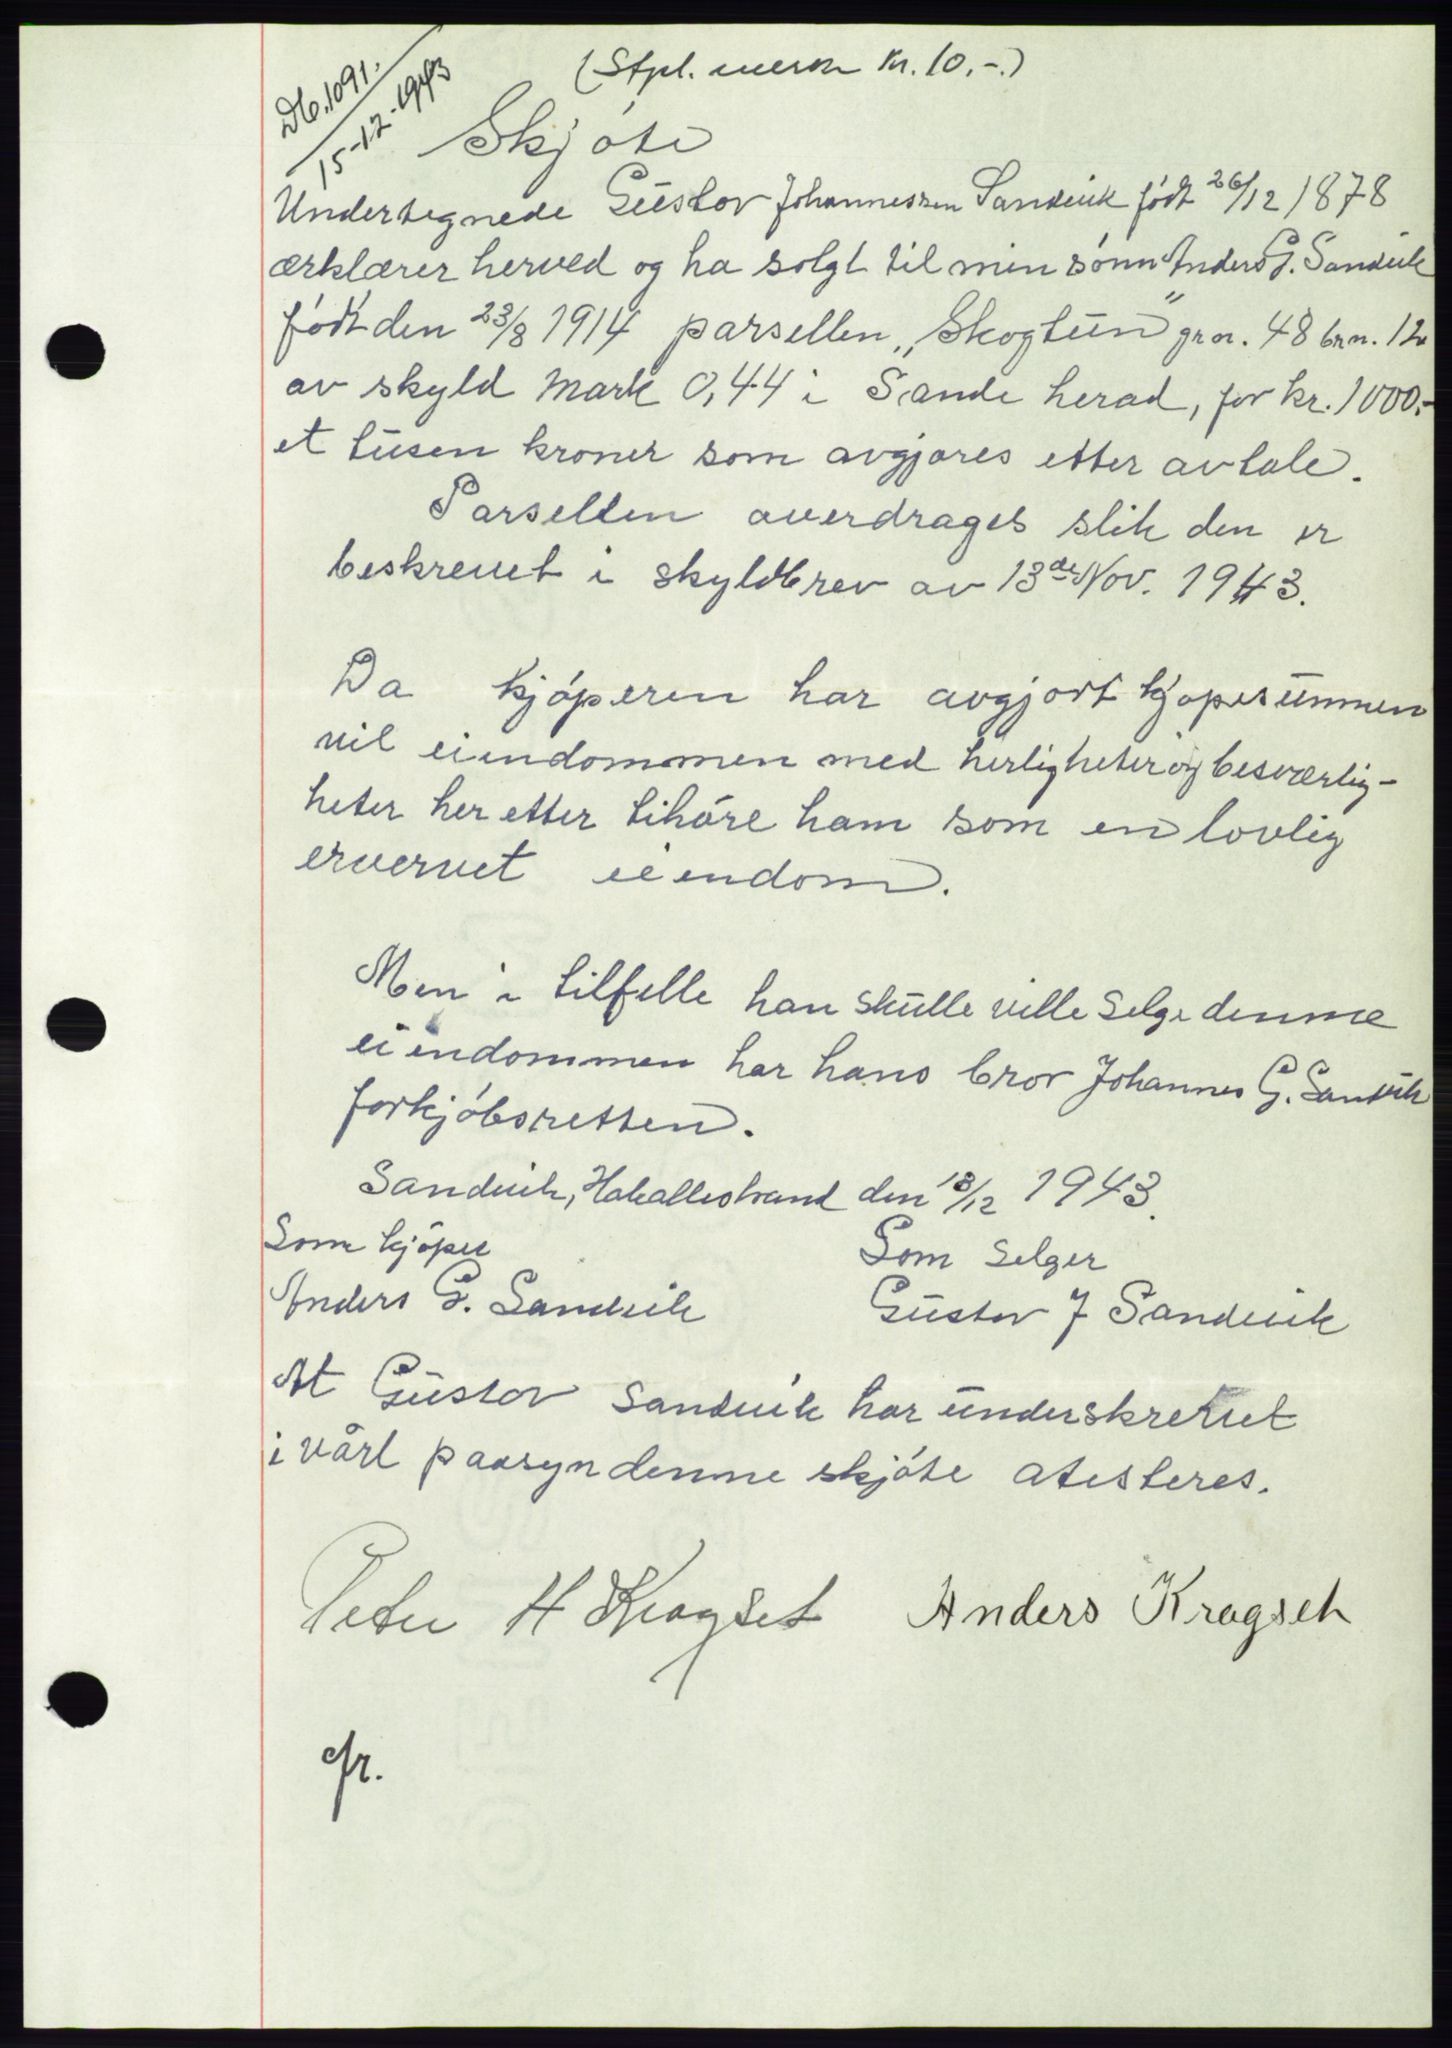 Db. 1091.
15-12-1943
(Stpl. merke kr. 10.-.)
Skjóte
Undertegnede Gustav Johannessen Sandvik født 26/12 1878
ærklærer herved og ha solgt til min sønn Anders G. Sandvik
født den 23/8 1914 parsellen „Skogtun" grn. 48 brn. 12
av skyld mark 0,44 i Sande herad, for kr. 1000.-
et tusen kroner som avgjøres etter avtale.
Parsellen averdrages slik den er
beskrevet i skyldbrev av 13de Nov. 1943.
Da kjøperen har avgjort kjøpesummen
vil eiendommen med herligheter og besværlig-
heter her etter tihøre ham som en lovlig
ervervet eiendom.
Men i tilfelle han skulle ville selge denne
eiendommen har hans bror Johannes G. Sandvik
forkjøbsretten.
Sandvik, Hakallestrand den 13/12 1943.
Som kjøper
Som selger
Anders G. Sandvik
Gustav J Sandvik
At Gustav Sandvik har underskrevet
i vårt paasyn denne skjøte atesteres.
Peter H Kragset
Anders Kragseth